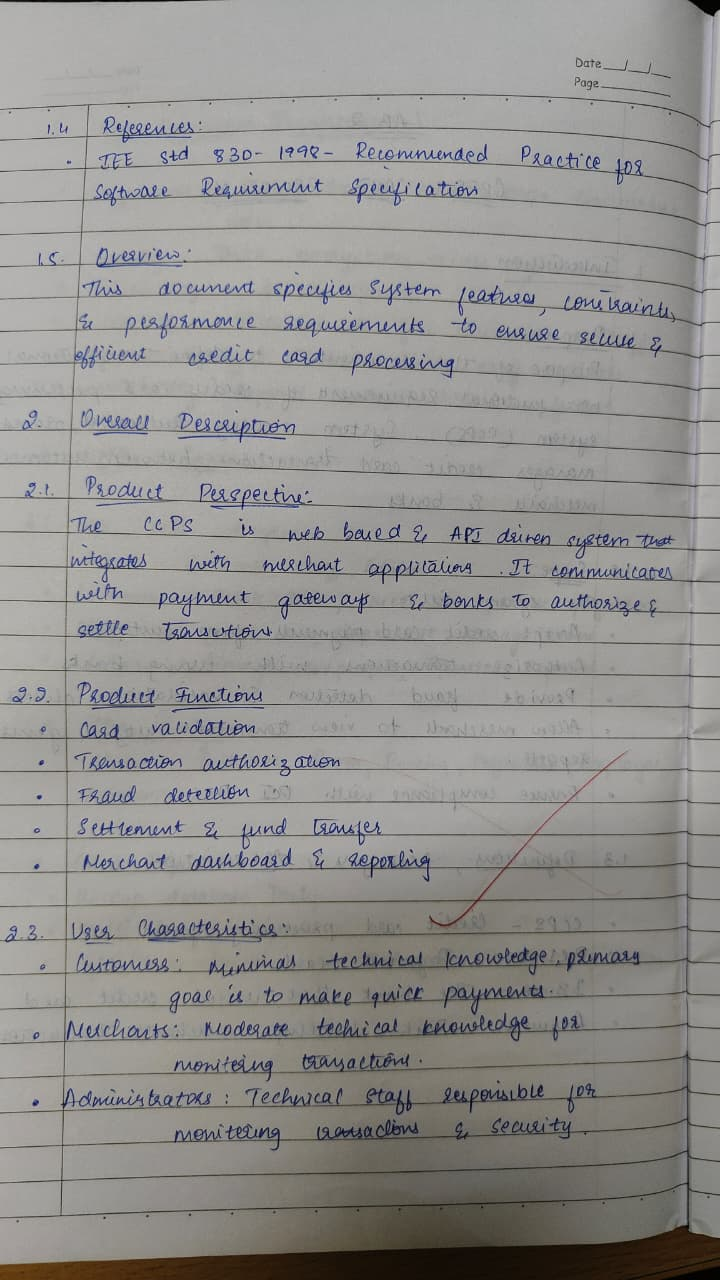 Date __/__/__
Page
1.4 References:
• IEE Std 830-1998- Recommended Practice for
Software Requirement Specification
1.5. Overview:
This document specifies system features, constraints,
& performance requirements to ensure secure &
efficient credit card processing
2. Overall Description
2.1. Product Perspective:
The CCPS is web based & API driven system that
integrates with merchant applications. It communicates
with payment gateways & banks to authorize &
settle transactions
2.2. Product Functions
• Card validation
• Transaction authorization
• Fraud detection
• Settlement & fund transfer
• Merchant dashboard & reporting
2.3. User Characteristics:
• Customers: minimal technical knowledge, primary
goal is to make quick payments.
• Merchants: Moderate technical knowledge for
monitering transactions.
• Administrators: Technical staff responsible for
monitering transactions & security.